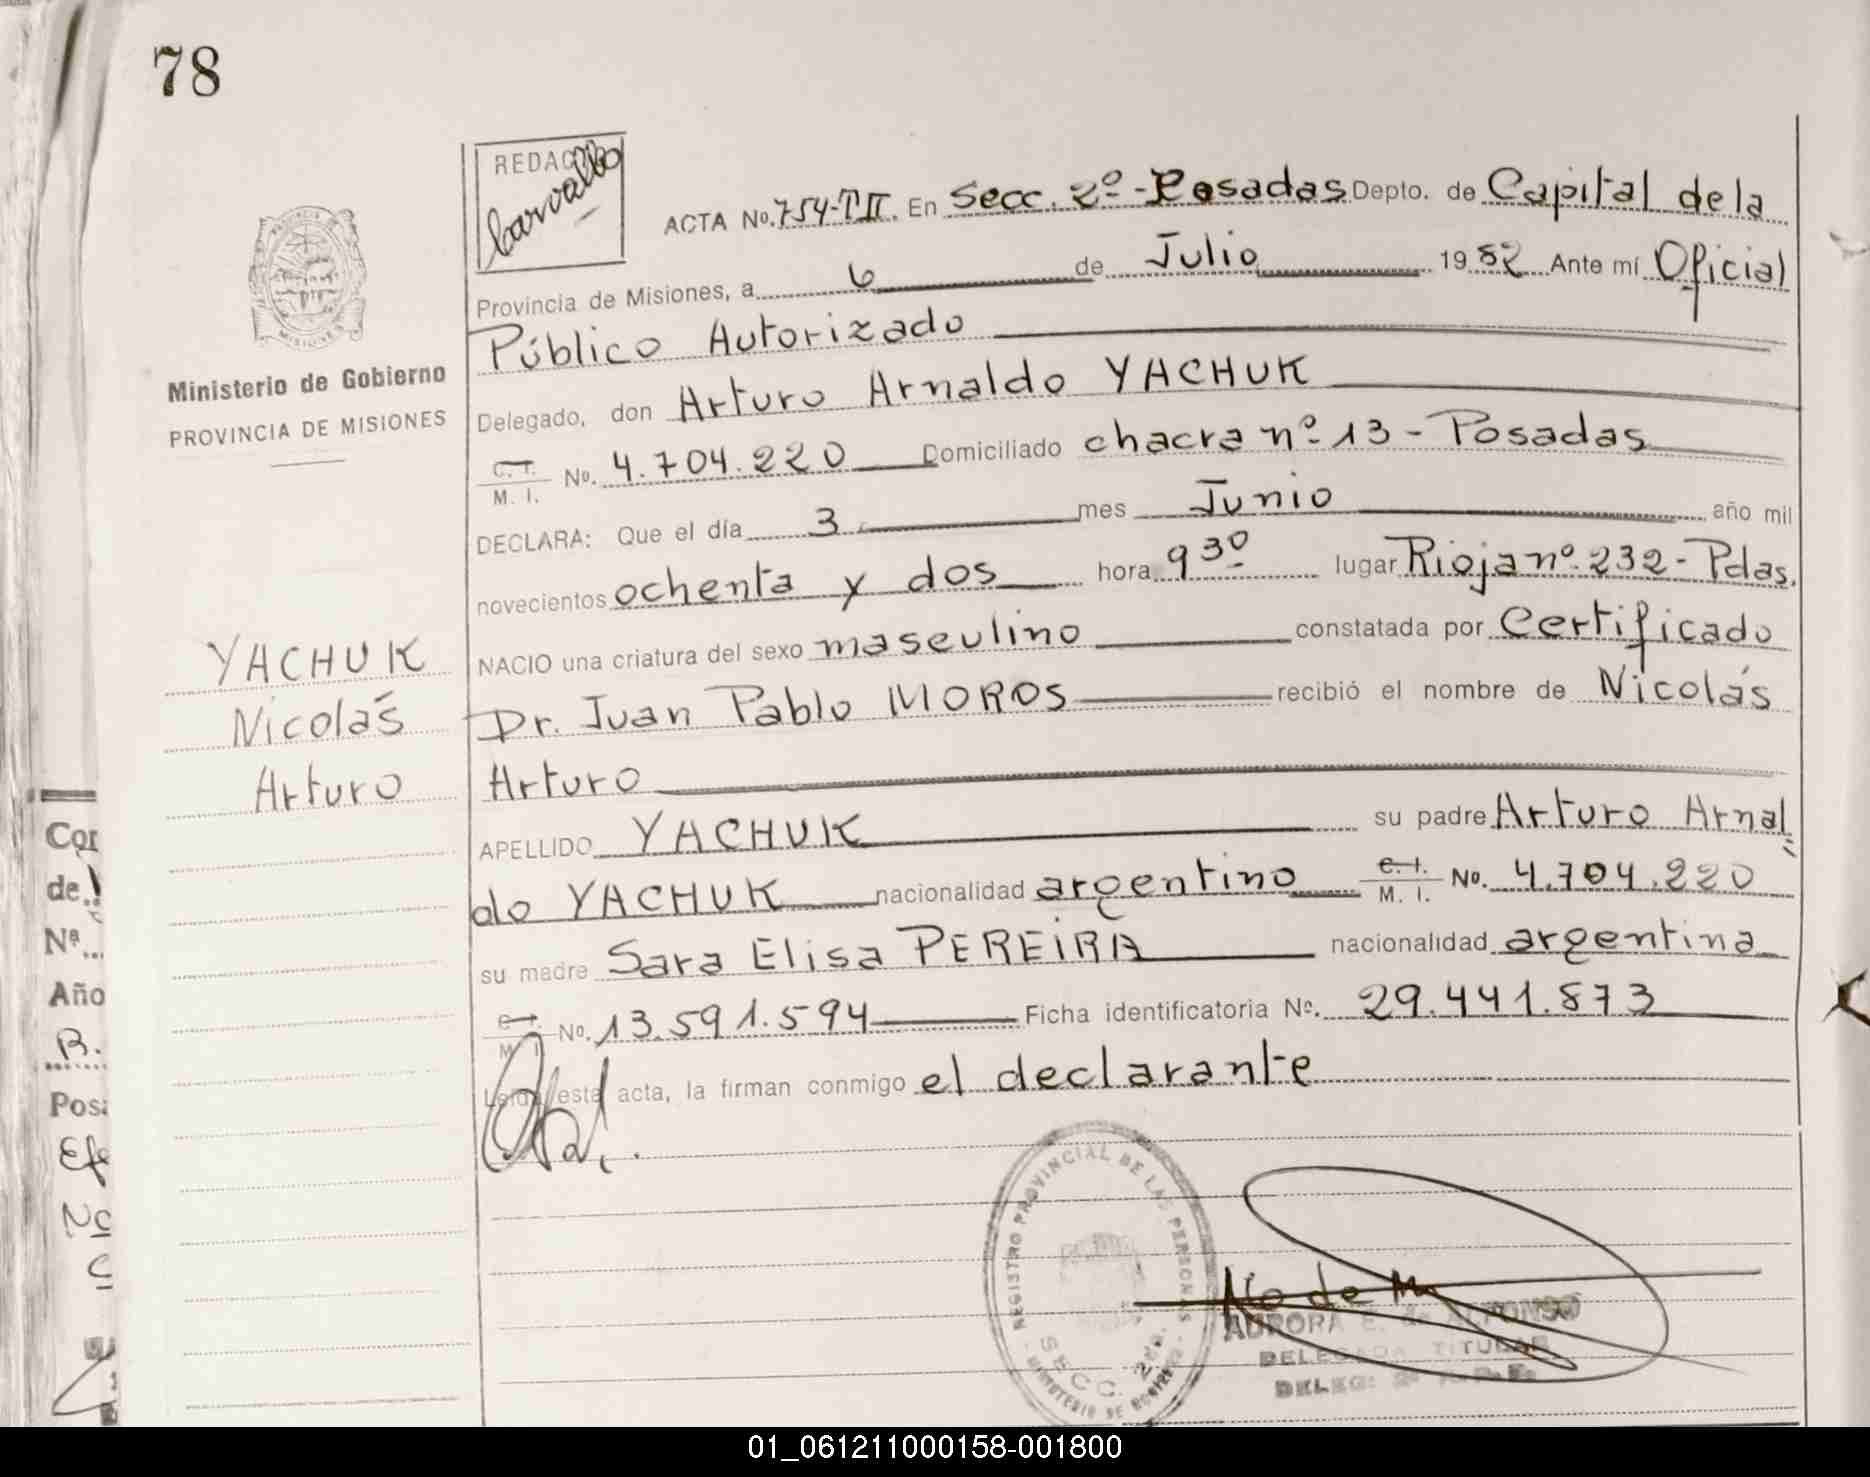 78
REDACTO
Carvallo
ACTA No. 754-TII. En Secc. 2º - Posadas Depto. de Capital de la
Provincia de Misiones, a 6 de Julio 1982 Ante mí Oficial
Público Autorizado
Delegado, don Arturo Arnaldo YACHUK
C. I.
M. I. No. 4.704.220 Domiciliado chacra nº 13 - Posadas
DECLARA: Que el día 3 mes Junio año mil
novecientos ochenta y dos hora 9 30 lugar Rioja nº 232 - Pdas.
NACIO una criatura del sexo masculino constatada por Certificado
Dr. Juan Pablo MOROS recibió el nombre de Nicolás
Arturo
APELLIDO YACHUK su padre Arturo Arnal
do YACHUK nacionalidad argentino C. I. M. I. No. 4.704.220
su madre Sara Elisa PEREIRA nacionalidad argentina
C. I.
M. I. No. 13.591.594 Ficha identificatoria No. 29.441.873
Leída esta acta, la firman conmigo el declarante
MISIONES
Ministerio de Gobierno
PROVINCIA DE MISIONES
YACHUK
Nicolás
Arturo
Cor
de
Nº
Año
B.
Posa
REGISTRO PROVINCIAL DE LAS PERSONAS
SECC. 2da.
AURORA E. de ALFONSO
DELEGADA TITULAR
DELEG: 2ª
01_061211000158-001800